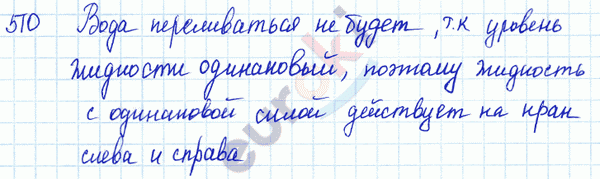 510 Вода переливаться не будет, т.к уровень
жидкости одинановый, поэтому жидкость
с одинановой силой действует на кран
слева и справа